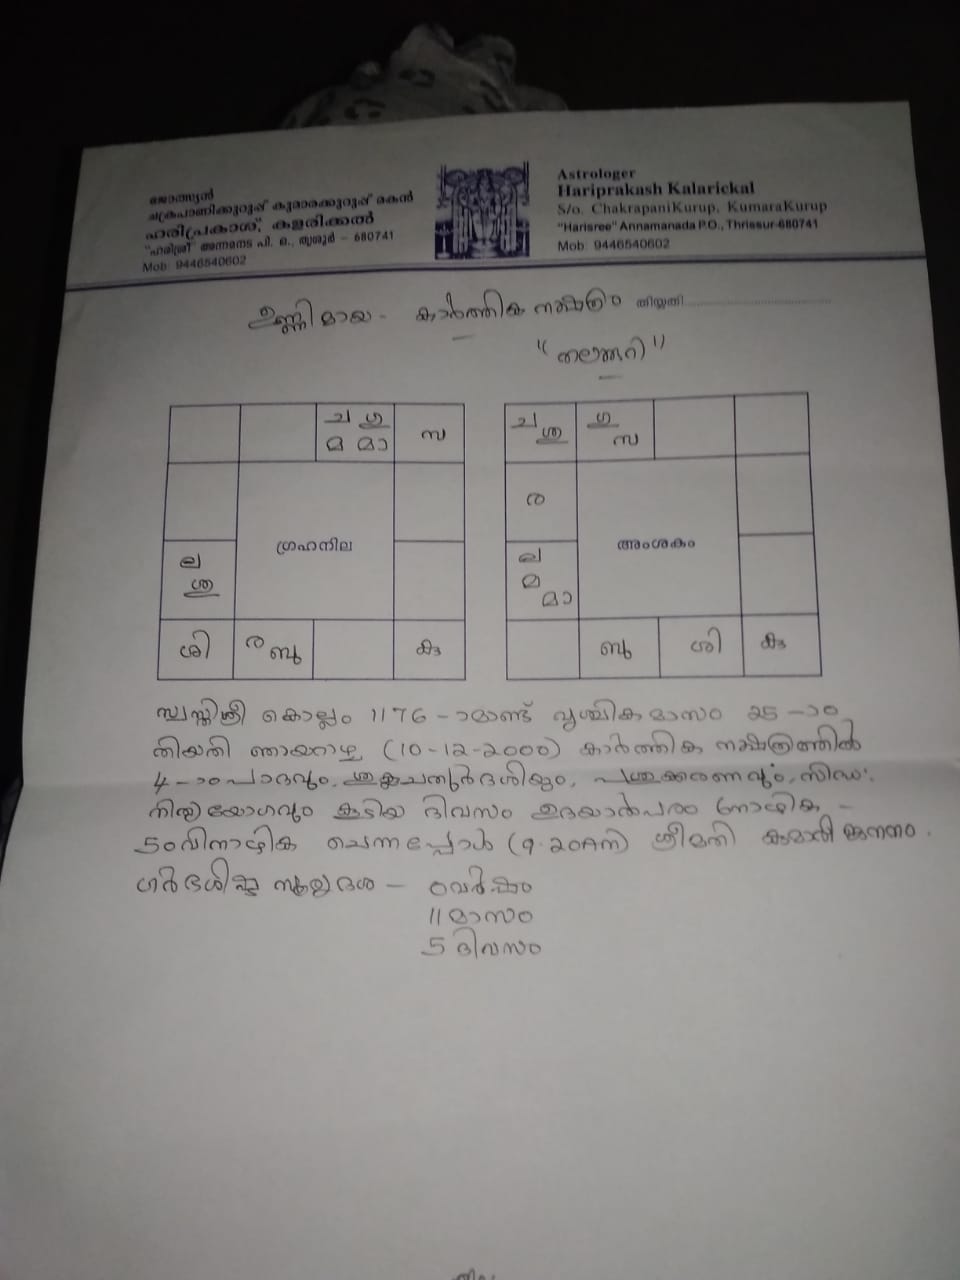 ജ്യോത്സ്യൻ
ചക്രപാണിക്കുറുപ്പ് കുമാരക്കുറുപ്പ് മകൻ
ഹരിപ്രകാശ്, കളരിക്കൽ
"ഹരിശ്രീ" അന്നമനട പി. ഒ., തൃശൂർ – 680741
Mob: 9446540602
Astrologer
Hariprakash Kalarickal
S/o. ChakrapaniKurup, KumaraKurup
"Harisree" Annamanada P.O., Thrissur-680741
Mob: 9446540602
ഉണ്ണിമായ - കാർത്തിക നക്ഷത്രം തിയ്യതി
"തലക്കുറി"
ച ഗു
മ മാ
സ
ഗ്രഹനില
ല
ശു
ശി
ര
ബു
കു
ച
ശു
ഗു
സ
ര
അംശകം
ല
മ
മാ
ബു
ശി
കു
സ്വസ്തിശ്രീ കൊല്ലം 1176 -ാമാണ്ട് വൃശ്ചികമാസം 25 -ാം
തിയതി ഞായറാഴ്ച (10-12-2000) കാർത്തിക നക്ഷത്രത്തിൽ
4 -ാംപാദവും, ശുക്ലചതുർദശിയും, പശുക്കരണവും, സിദ്ധ:
നിത്യയോഗവും കൂടിയ ദിവസം ഉദയാൽപരം നാഴിക -
50 വിനാഴിക ചെന്നപ്പോൾ (9.20AM) ശ്രീമതി കുമാരി ജനനം.
ഗർഭശിഷ്ട സൂര്യദശ – 0 വർഷം
11 മാസം
5 ദിവസം